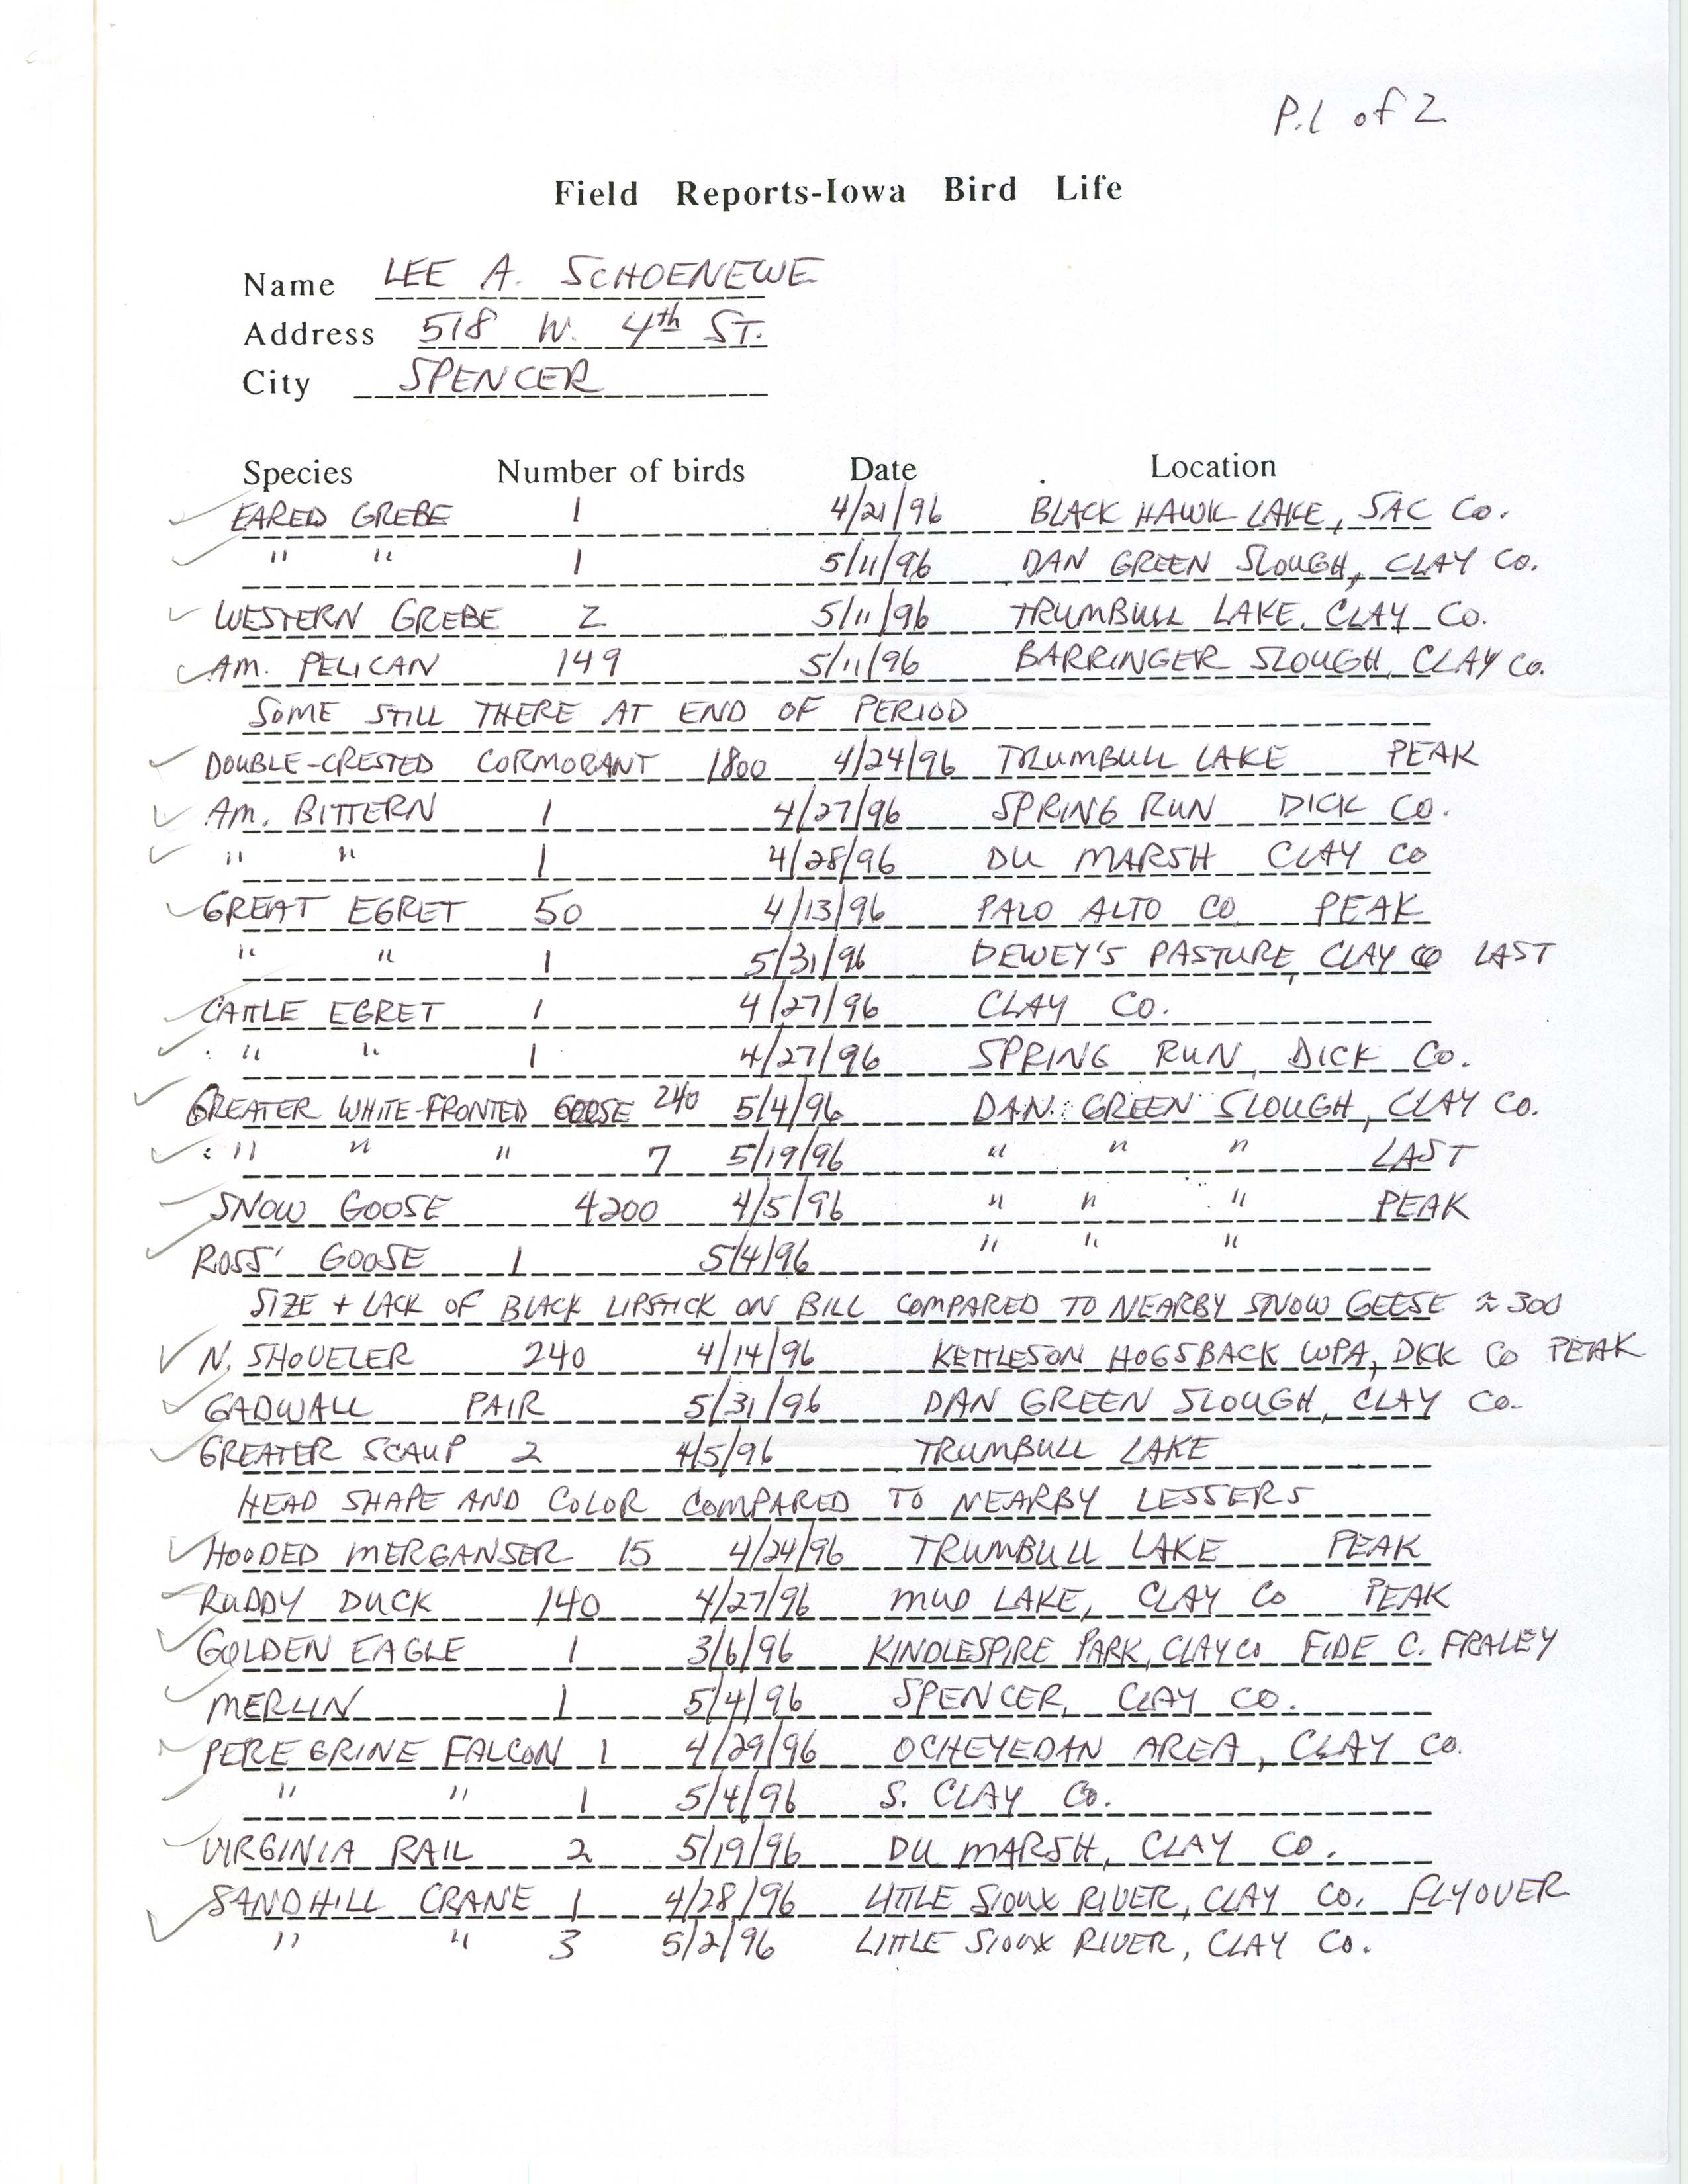 P.1 of 2
Field Reports-Iowa Bird Life
Name LEE A. SCHOENEWE
Address 518 W. 4th ST.
City SPENCER
Species Number of birds Date Location
EARED GREBE 1 4/21/96 BLACK HAWK LAKE, SAC CO.
" " 1 5/11/96 DAN GREEN SLOUGH, CLAY CO.
WESTERN GREBE 2 5/11/96 TRUMBULL LAKE, CLAY CO.
AM. PELICAN 149 5/11/96 BARRINGER SLOUGH, CLAY CO.
SOME STILL THERE AT END OF PERIOD
DOUBLE-CRESTED CORMORANT 1800 4/24/96 TRUMBULL LAKE PEAK
AM. BITTERN 1 4/27/96 SPRING RUN DICK CO.
" " 1 4/28/96 DU MARSH CLAY CO
GREAT EGRET 50 4/13/96 PALO ALTO CO PEAK
" " 1 5/31/96 DEWEY'S PASTURE, CLAY CO LAST
CATTLE EGRET 1 4/27/96 CLAY CO.
" " 1 4/27/96 SPRING RUN, DICK CO.
GREATER WHITE-FRONTED GOOSE 240 5/4/96 DAN GREEN SLOUGH, CLAY CO.
" " " 7 5/19/96 " " " LAST
SNOW GOOSE 4200 4/5/96 " " " PEAK
ROSS' GOOSE 1 5/4/96 " " "
SIZE + LACK OF BLACK LIPSTICK ON BILL COMPARED TO NEARBY SNOW GEESE ≈ 300
N. SHOVELER 240 4/14/96 KETTLESON HOGSBACK WPA, DICK CO PEAK
GADWALL PAIR 5/31/96 DAN GREEN SLOUGH, CLAY CO.
GREATER SCAUP 2 4/5/96 TRUMBULL LAKE
HEAD SHAPE AND COLOR COMPARED TO NEARBY LESSERS
HOODED MERGANSER 15 4/24/96 TRUMBULL LAKE PEAK
RUDDY DUCK 140 4/27/96 MUD LAKE, CLAY CO PEAK
GOLDEN EAGLE 1 3/6/96 KINDLESPIRE PARK, CLAY CO FIDE C. FRALEY
MERLIN 1 5/4/96 SPENCER, CLAY CO.
PEREGRINE FALCON 1 4/29/96 OCHEYEDAN AREA, CLAY CO.
" " 1 5/4/96 S. CLAY CO.
VIRGINIA RAIL 2 5/19/96 DU MARSH, CLAY CO.
SANDHILL CRANE 1 4/28/96 LITTLE SIOUX RIVER, CLAY CO. FLYOVER
" " 3 5/2/96 LITTLE SIOUX RIVER, CLAY CO.